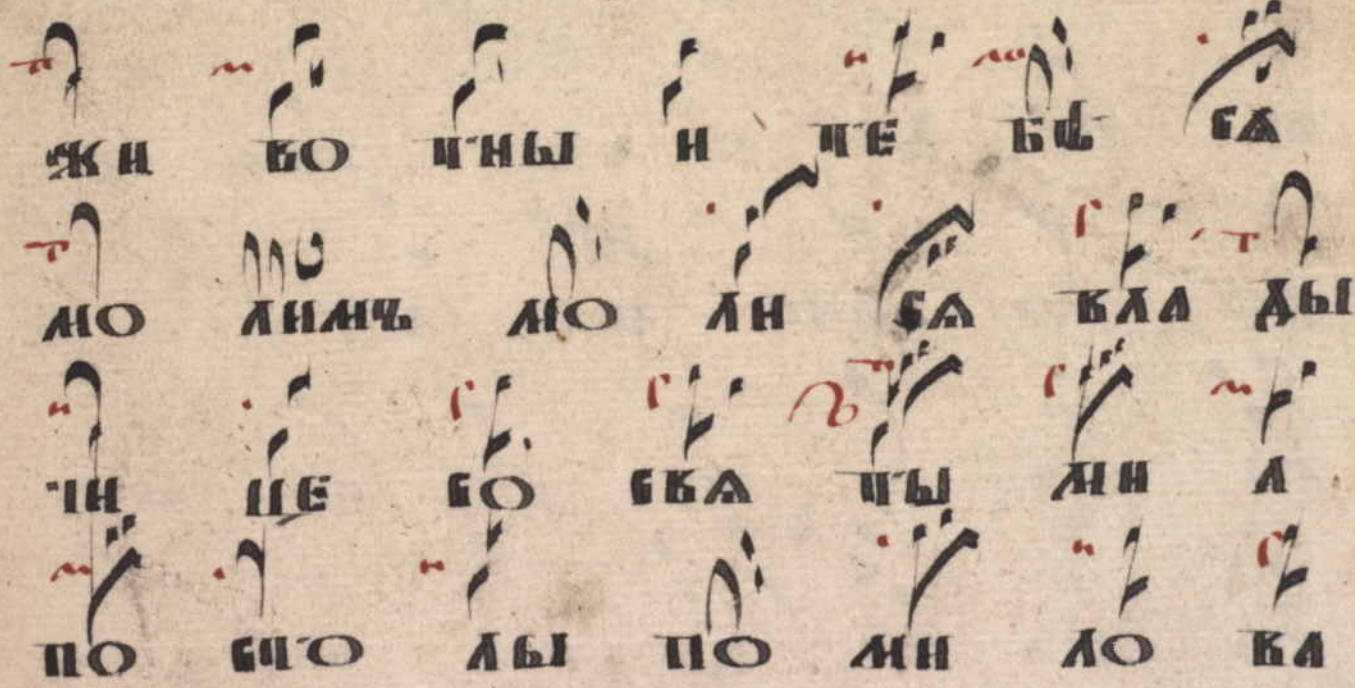 жи во тны и те бѣ сѧ
мо лимъ мо ли сѧ вла ды
чи це со свѧ ты ми а
по сто лы по ми ло ва